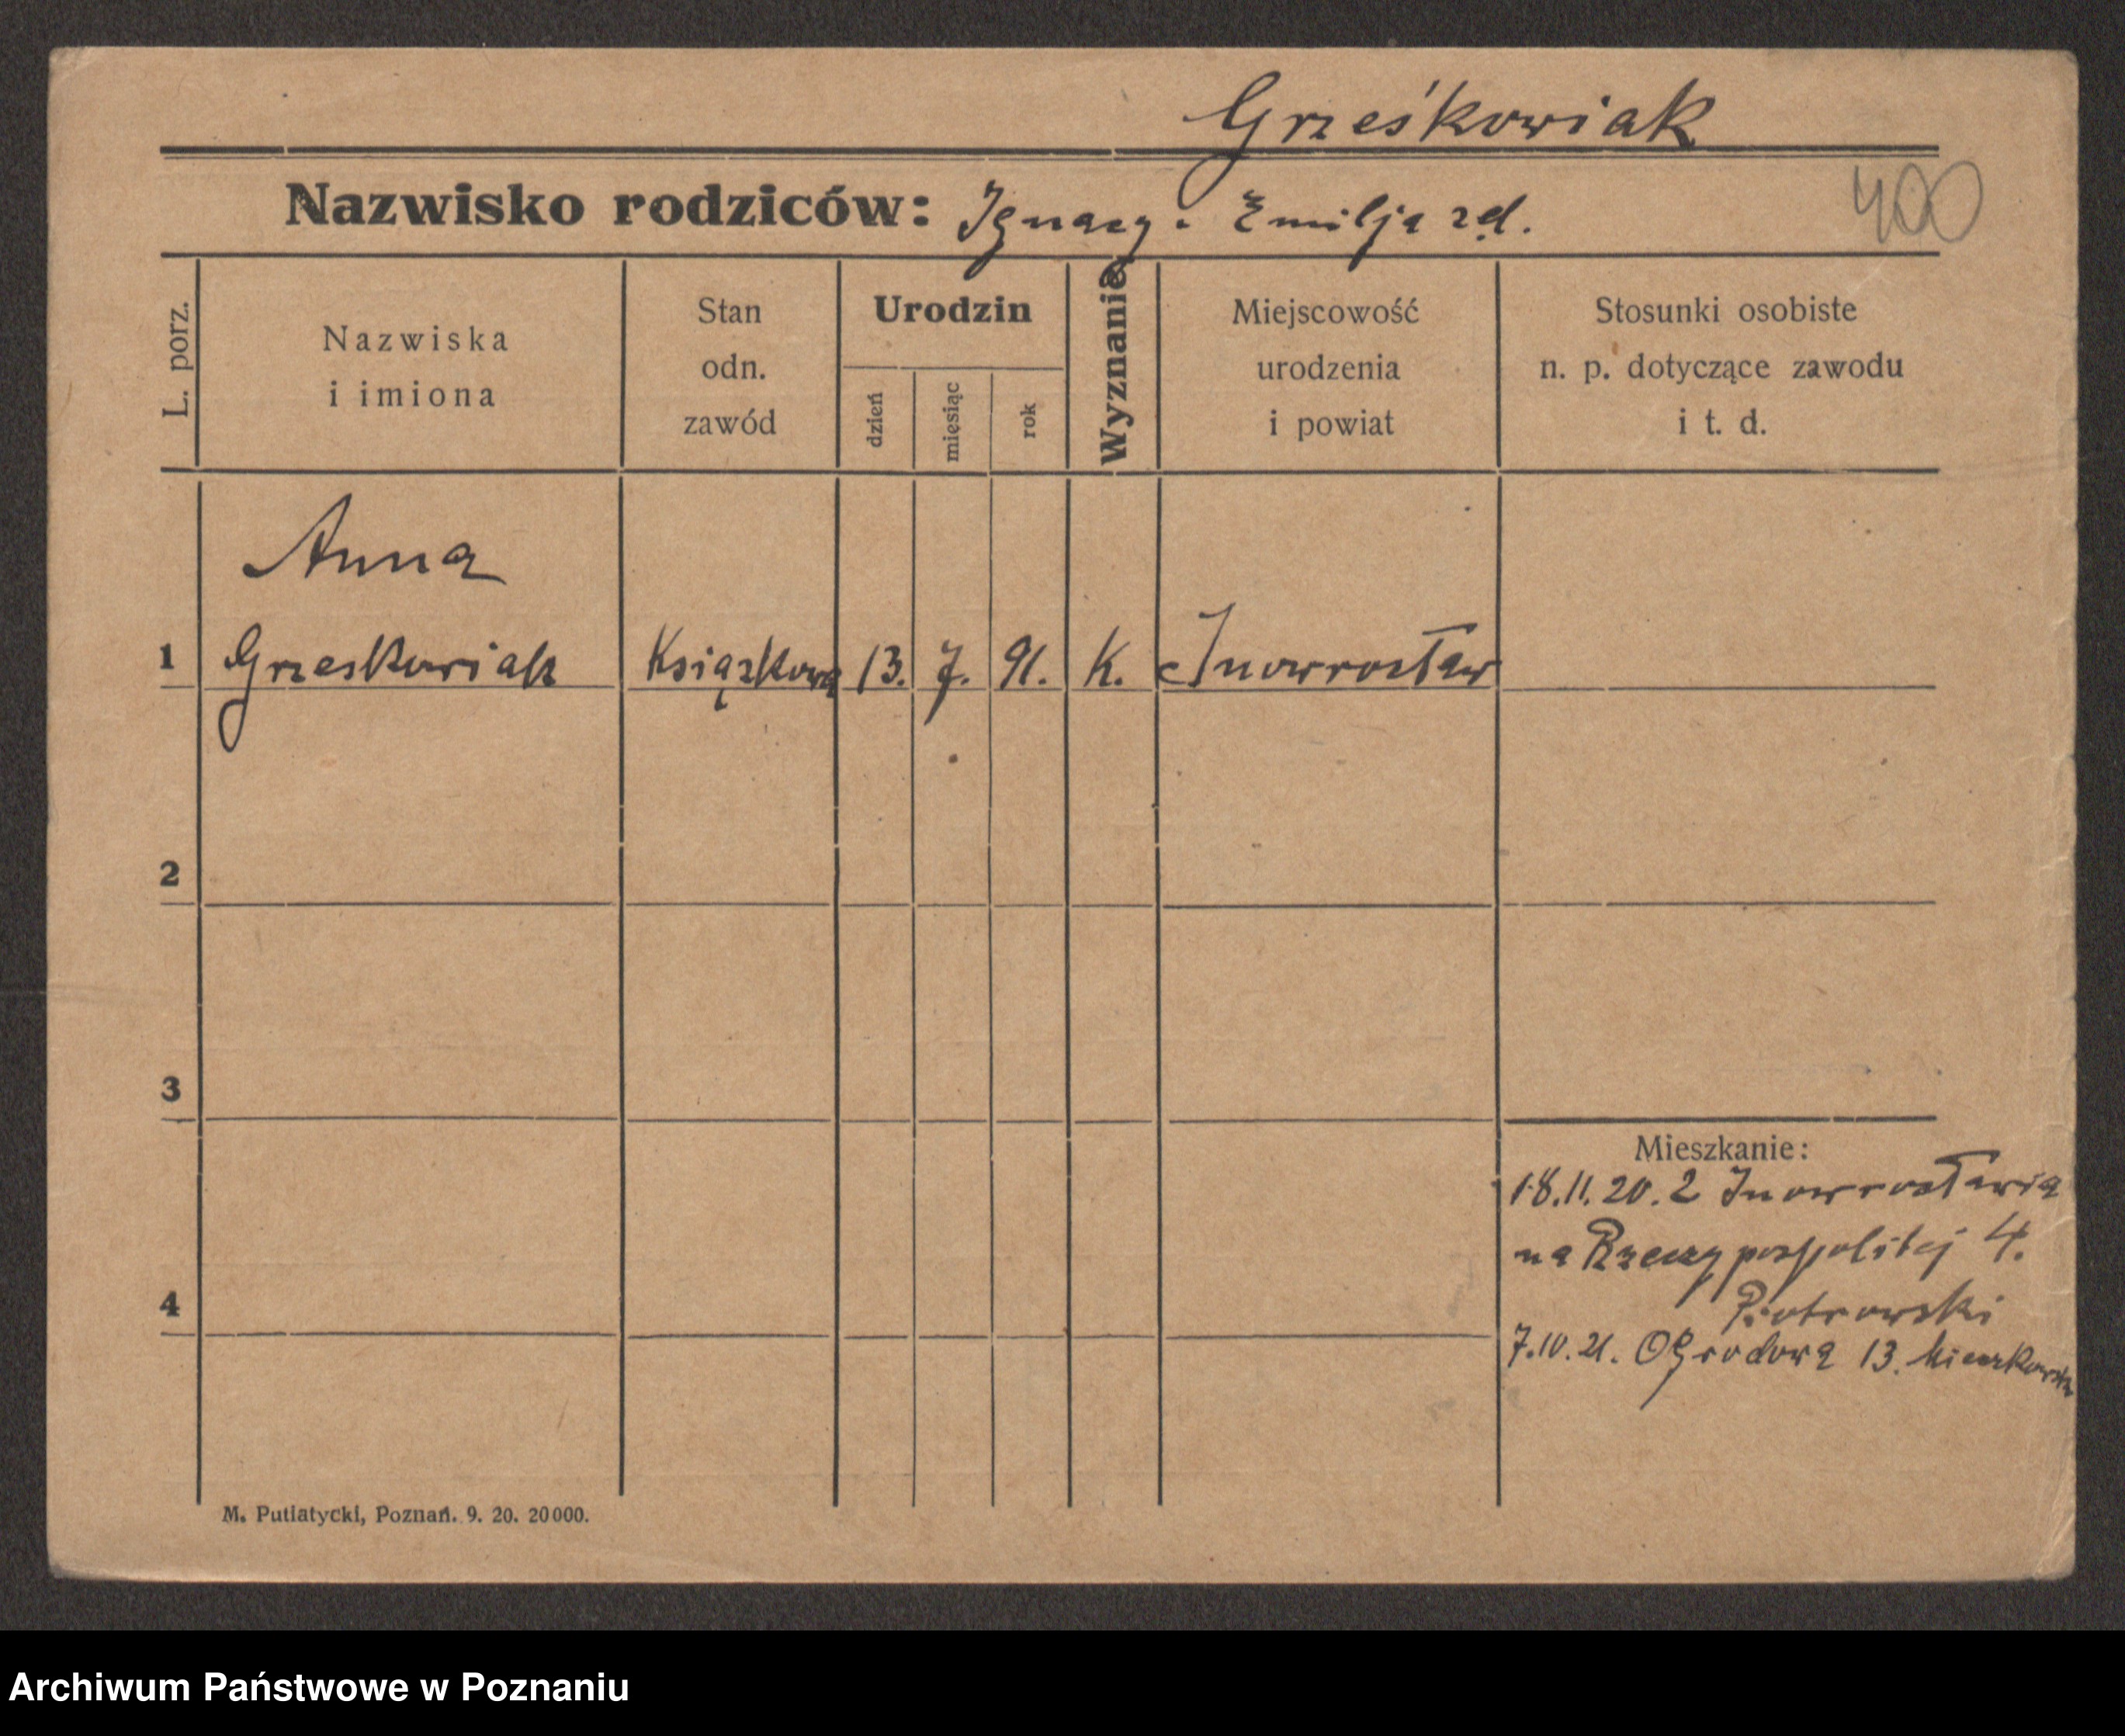 Grześkowiak
Nazwisko rodziców: Ignacy i Emilja zd.
400
L. porz.
Nazwiska
i imiona
Stan
odn.
zawód
Urodzin
dzień
miesiąc
rok
Wyznanie
Miejscowość
urodzenia
i powiat
Stosunki osobiste
n. p. dotyczące zawodu
i t. d.
Anna
1 Grzeskowiak Książkowa 13. 7. 91. K. Inowrocław
2
3
Mieszkanie:
18.11.20. z Inowrocławia
na Rzeczypospolitej 4.
4
Piotrowski
7.10.21. Ogrodowa 13.
M. Putiatycki, Poznań. 9. 20. 20000.
Archiwum Państwowe w Poznaniu